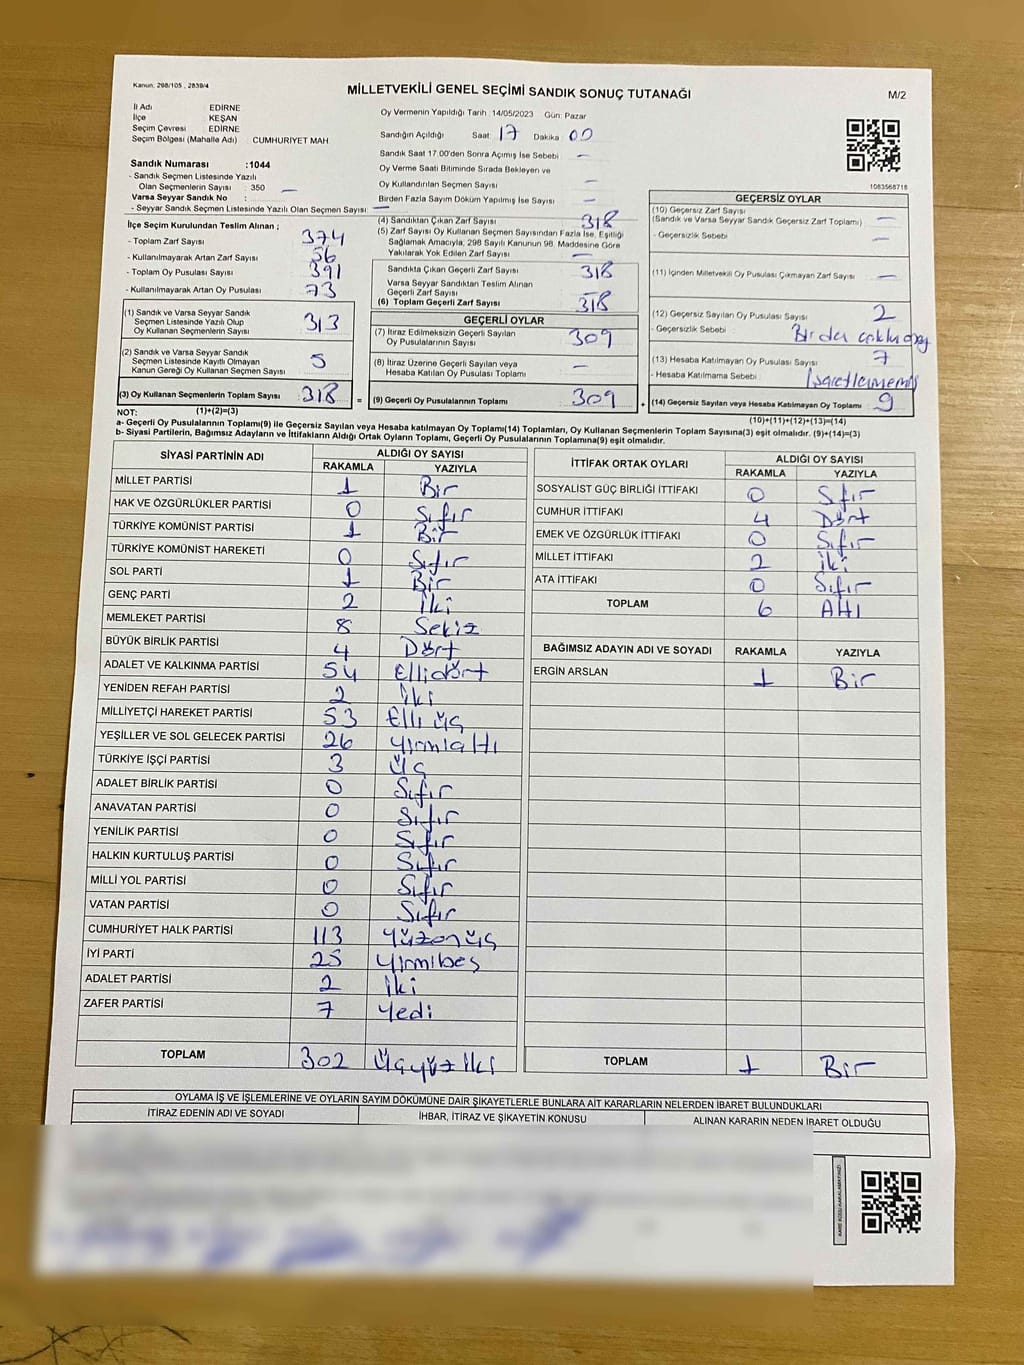 Kanun: 298/105 , 2839/4
MİLLETVEKİLİ GENEL SEÇİMİ SANDIK SONUÇ TUTANAĞI
M/2
İl Adı EDİRNE
İlçe KEŞAN
Seçim Çevresi EDİRNE
Seçim Bölgesi (Mahalle Adı) CUMHURİYET MAH
Sandık Numarası :1044
- Sandık Seçmen Listesinde Yazılı
Olan Seçmenlerin Sayısı : 350 —
Varsa Seyyar Sandık No :
- Seyyar Sandık Seçmen Listesinde Yazılı Olan Seçmen Sayısı: —
Oy Vermenin Yapıldığı Tarih :14/05/2023 Gün: Pazar
Sandığın Açıldığı Saat 17 Dakika 00
Sandık Saat 17:00'den Sonra Açımış İse Sebebi —
Oy Verme Saati Bitiminde Sırada Bekleyen ve
Oy Kullandırılan Seçmen Sayısı —
Birden Fazla Sayım Döküm Yapılmış İse Sayısı —
1083568718
İlçe Seçim Kurulundan Teslim Alınan ;
- Toplam Zarf Sayısı 374
- Kullanılmayarak Artan Zarf Sayısı 56
- Toplam Oy Pusulası Sayısı 391
- Kullanılmayarak Artan Oy Pusulası 73
(1) Sandık ve Varsa Seyyar Sandık
Seçmen Listesinde Yazılı Olup
Oy Kullanan Seçmenlerin Sayısı 313
(2) Sandık ve Varsa Seyyar Sandık
Seçmen Listesinde Kayıtlı Olmayan
Kanun Gereği Oy Kullanan Seçmen Sayısı 5
(3) Oy Kullanan Seçmenlerin Toplam Sayısı 318 =
(4) Sandıktan Çıkan Zarf Sayısı 318
(5) Zarf Sayısı Oy Kullanan Seçmen Sayısından Fazla İse, Eşitliği
Sağlamak Amacıyla, 298 Sayılı Kanunun 98. Maddesine Göre
Yakılarak Yok Edilen Zarf Sayısı —
Sandıkta Çıkan Geçerli Zarf Sayısı 318
Varsa Seyyar Sandıktan Teslim Alınan
Geçerli Zarf Sayısı —
(6) Toplam Geçerli Zarf Sayısı 318
GEÇERLİ OYLAR
(7) İtiraz Edilmeksizin Geçerli Sayılan
Oy Pusulalarının Sayısı 309
(8) İtiraz Üzerine Geçerli Sayılan veya
Hesaba Katılan Oy Pusulası Toplamı —
(9) Geçerli Oy Pusulalarının Toplamı 309 +
GEÇERSİZ OYLAR
(10) Geçersiz Zarf Sayısı
(Sandık ve Varsa Seyyar Sandık Geçersiz Zarf Toplamı) —
- Geçersizlik Sebebi —
(11) İçinden Milletvekili Oy Pusulası Çıkmayan Zarf Sayısı —
(12) Geçersiz Sayılan Oy Pusulası Sayısı 2
- Geçersizlik Sebebi Birden
(13) Hesaba Katılmayan Oy Pusulası Sayısı 7
- Hesaba Katılmama Sebebi İşaretlenmemiş
(14) Geçersiz Sayılan veya Hesaba Katılmayan Oy Toplamı 9
NOT: (1)+(2)=(3) (10)+(11)+(12)+(13)=(14)
a- Geçerli Oy Pusulalarının Toplamı(9) ile Geçersiz Sayılan veya Hesaba katılmayan Oy Toplamı(14) Toplamları, Oy Kullanan Seçmenlerin Toplam Sayısına(3) eşit olmalıdır. (9)+(14)=(3)
b- Siyasi Partilerin, Bağımsız Adayların ve İttifakların Aldığı Ortak Oyların Toplamı, Geçerli Oy Pusulalarının Toplamına(9) eşit olmalıdır.
SİYASİ PARTİNİN ADI ALDIĞI OY SAYISI
RAKAMLA YAZIYLA
MİLLET PARTİSİ 1 Bir
HAK VE ÖZGÜRLÜKLER PARTİSİ 0 Sıfır
TÜRKİYE KOMÜNİST PARTİSİ 1 Bir
TÜRKİYE KOMÜNİST HAREKETİ 0 Sıfır
SOL PARTİ 1 Bir
GENÇ PARTİ 2 İki
MEMLEKET PARTİSİ 8 Sekiz
BÜYÜK BİRLİK PARTİSİ 4 Dört
ADALET VE KALKINMA PARTİSİ 54 Ellidört
YENİDEN REFAH PARTİSİ 2 İki
MİLLİYETÇİ HAREKET PARTİSİ 53 Elli üç
YEŞİLLER VE SOL GELECEK PARTİSİ 26 Yirmialtı
TÜRKİYE İŞÇİ PARTİSİ 3 Üç
ADALET BİRLİK PARTİSİ 0 Sıfır
ANAVATAN PARTİSİ 0 Sıfır
YENİLİK PARTİSİ 0 Sıfır
HALKIN KURTULUŞ PARTİSİ 0 Sıfır
MİLLİ YOL PARTİSİ 0 Sıfır
VATAN PARTİSİ 0 Sıfır
CUMHURİYET HALK PARTİSİ 113 Yüzonüç
İYİ PARTİ 25 Yirmibeş
ADALET PARTİSİ 2 İki
ZAFER PARTİSİ 7 Yedi
TOPLAM 302 Üçyüz İki
İTTİFAK ORTAK OYLARI ALDIĞI OY SAYISI
RAKAMLA YAZIYLA
SOSYALİST GÜÇ BİRLİĞİ İTTİFAKI 0 Sıfır
CUMHUR İTTİFAKI 4 Dört
EMEK VE ÖZGÜRLÜK İTTİFAKI 0 Sıfır
MİLLET İTTİFAKI 2 İki
ATA İTTİFAKI 0 Sıfır
TOPLAM 6 Altı
BAĞIMSIZ ADAYIN ADI VE SOYADI RAKAMLA YAZIYLA
ERGİN ARSLAN 1 Bir
TOPLAM 1 Bir
OYLAMA İŞ VE İŞLEMLERİNE VE OYLARIN SAYIM DÖKÜMÜNE DAİR ŞİKAYETLERLE BUNLARA AİT KARARLARIN NELERDEN İBARET BULUNDUKLARI
İTİRAZ EDENİN ADI VE SOYADI İHBAR, İTİRAZ VE ŞİKAYETİN KONUSU ALINAN KARARIN NEDEN İBARET OLDUĞU